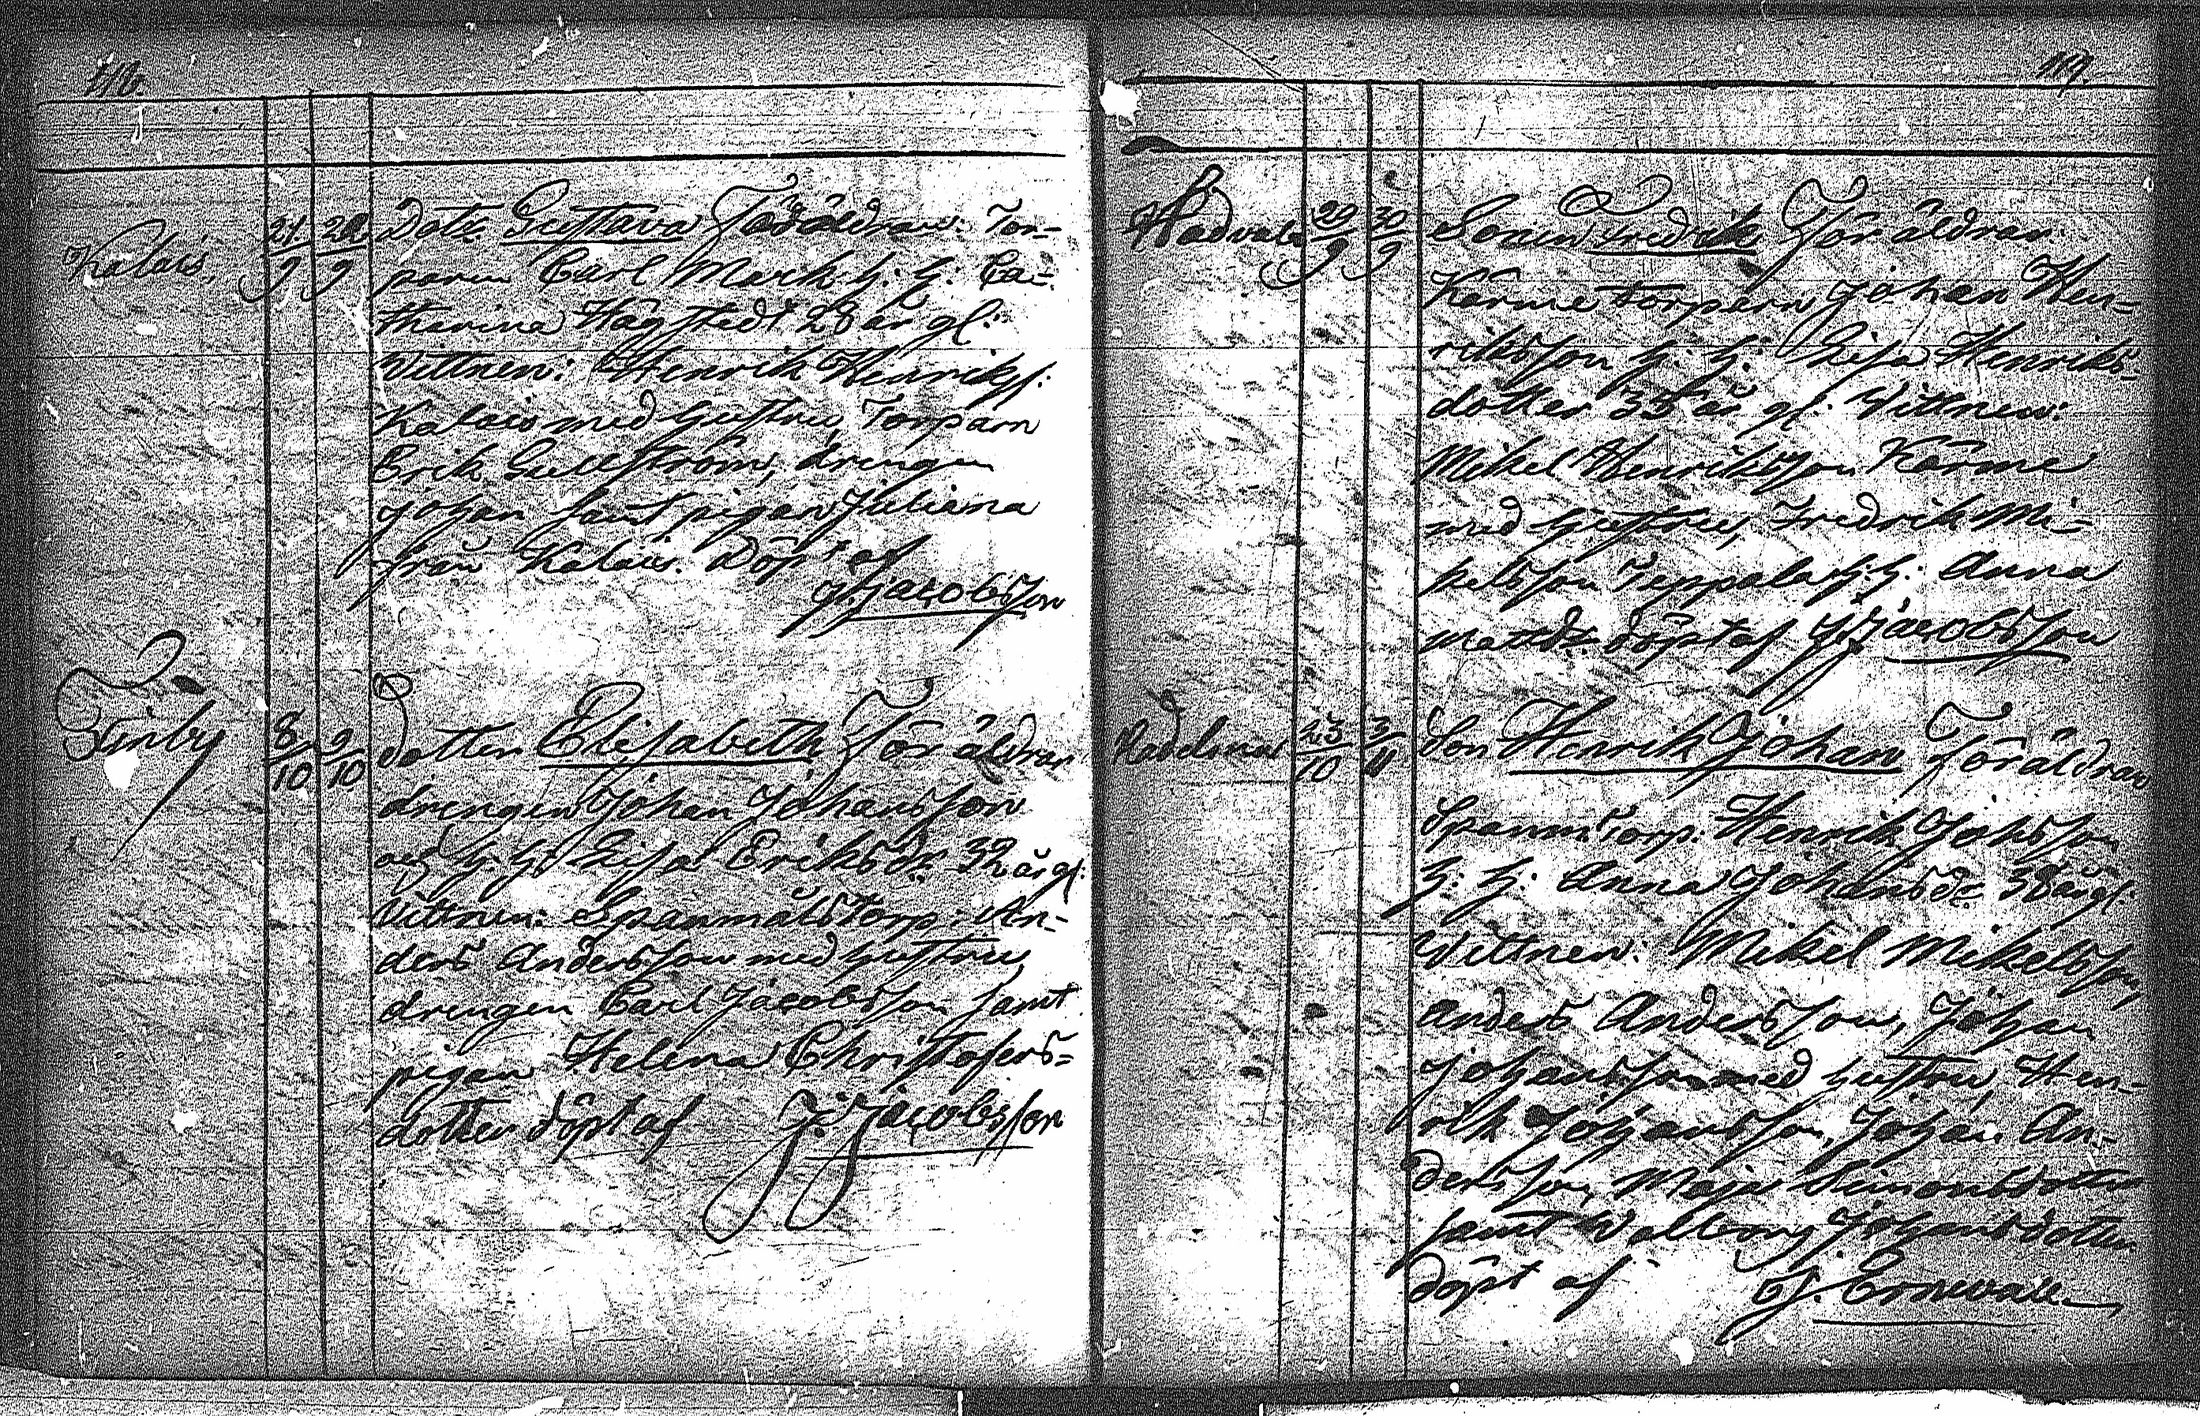 118.
Kalais, 21/9 28/9 Dotr. Gustava Föräldrar: Tor-
paren Carl Mark h: h: Ca-
tharina Hägstedt 28 år gl:
Vittnen: Henrik Henrikss:
Kalais med hustru, Torparn
Erik Gullström, drengen
Johan samt pigan Juliana
från Kalais. Döpt af
J. Jacobsson
Finby 8/10 9/10 dotter Elisabeth Föräldrar
drengen Johan Johansson
och h: h: Lisa Eriksdr 32 år gl:
Vittnen: Spanmålstorp: An-
ders Andersson med hustru,
drengen Carl Jacobsson samt
pigan Helena Christofers-
dotter döpt af J. Jacobsson
119.
29/9 30/9 Sonen Fredrik Föräldrar:
Kärme torparn Johan Hen-
riksson h: h: Lisa Henriks-
dotter 35 år gl: Vittnen:
Mikel Henriksson Kärme
med hustru, Fredrik Mi-
kelsson Teppala h: h: Anna
Mattsdr. döpt af J. Jacobsson
23/10 3/11 Son Henrik Johan Föräldrar
Spanm: Torp. Henrik Johsson
h: h: Anna Johansdr. 38 år gl:
Vittnen: Mikel Mikelsson,
Anders Andersson, Johan
Johansson med hustru, Hen-
rik Johansson, Johan An-
dersson, Maja Simonsdotter
samt Walborg Johansdotter
döpt af